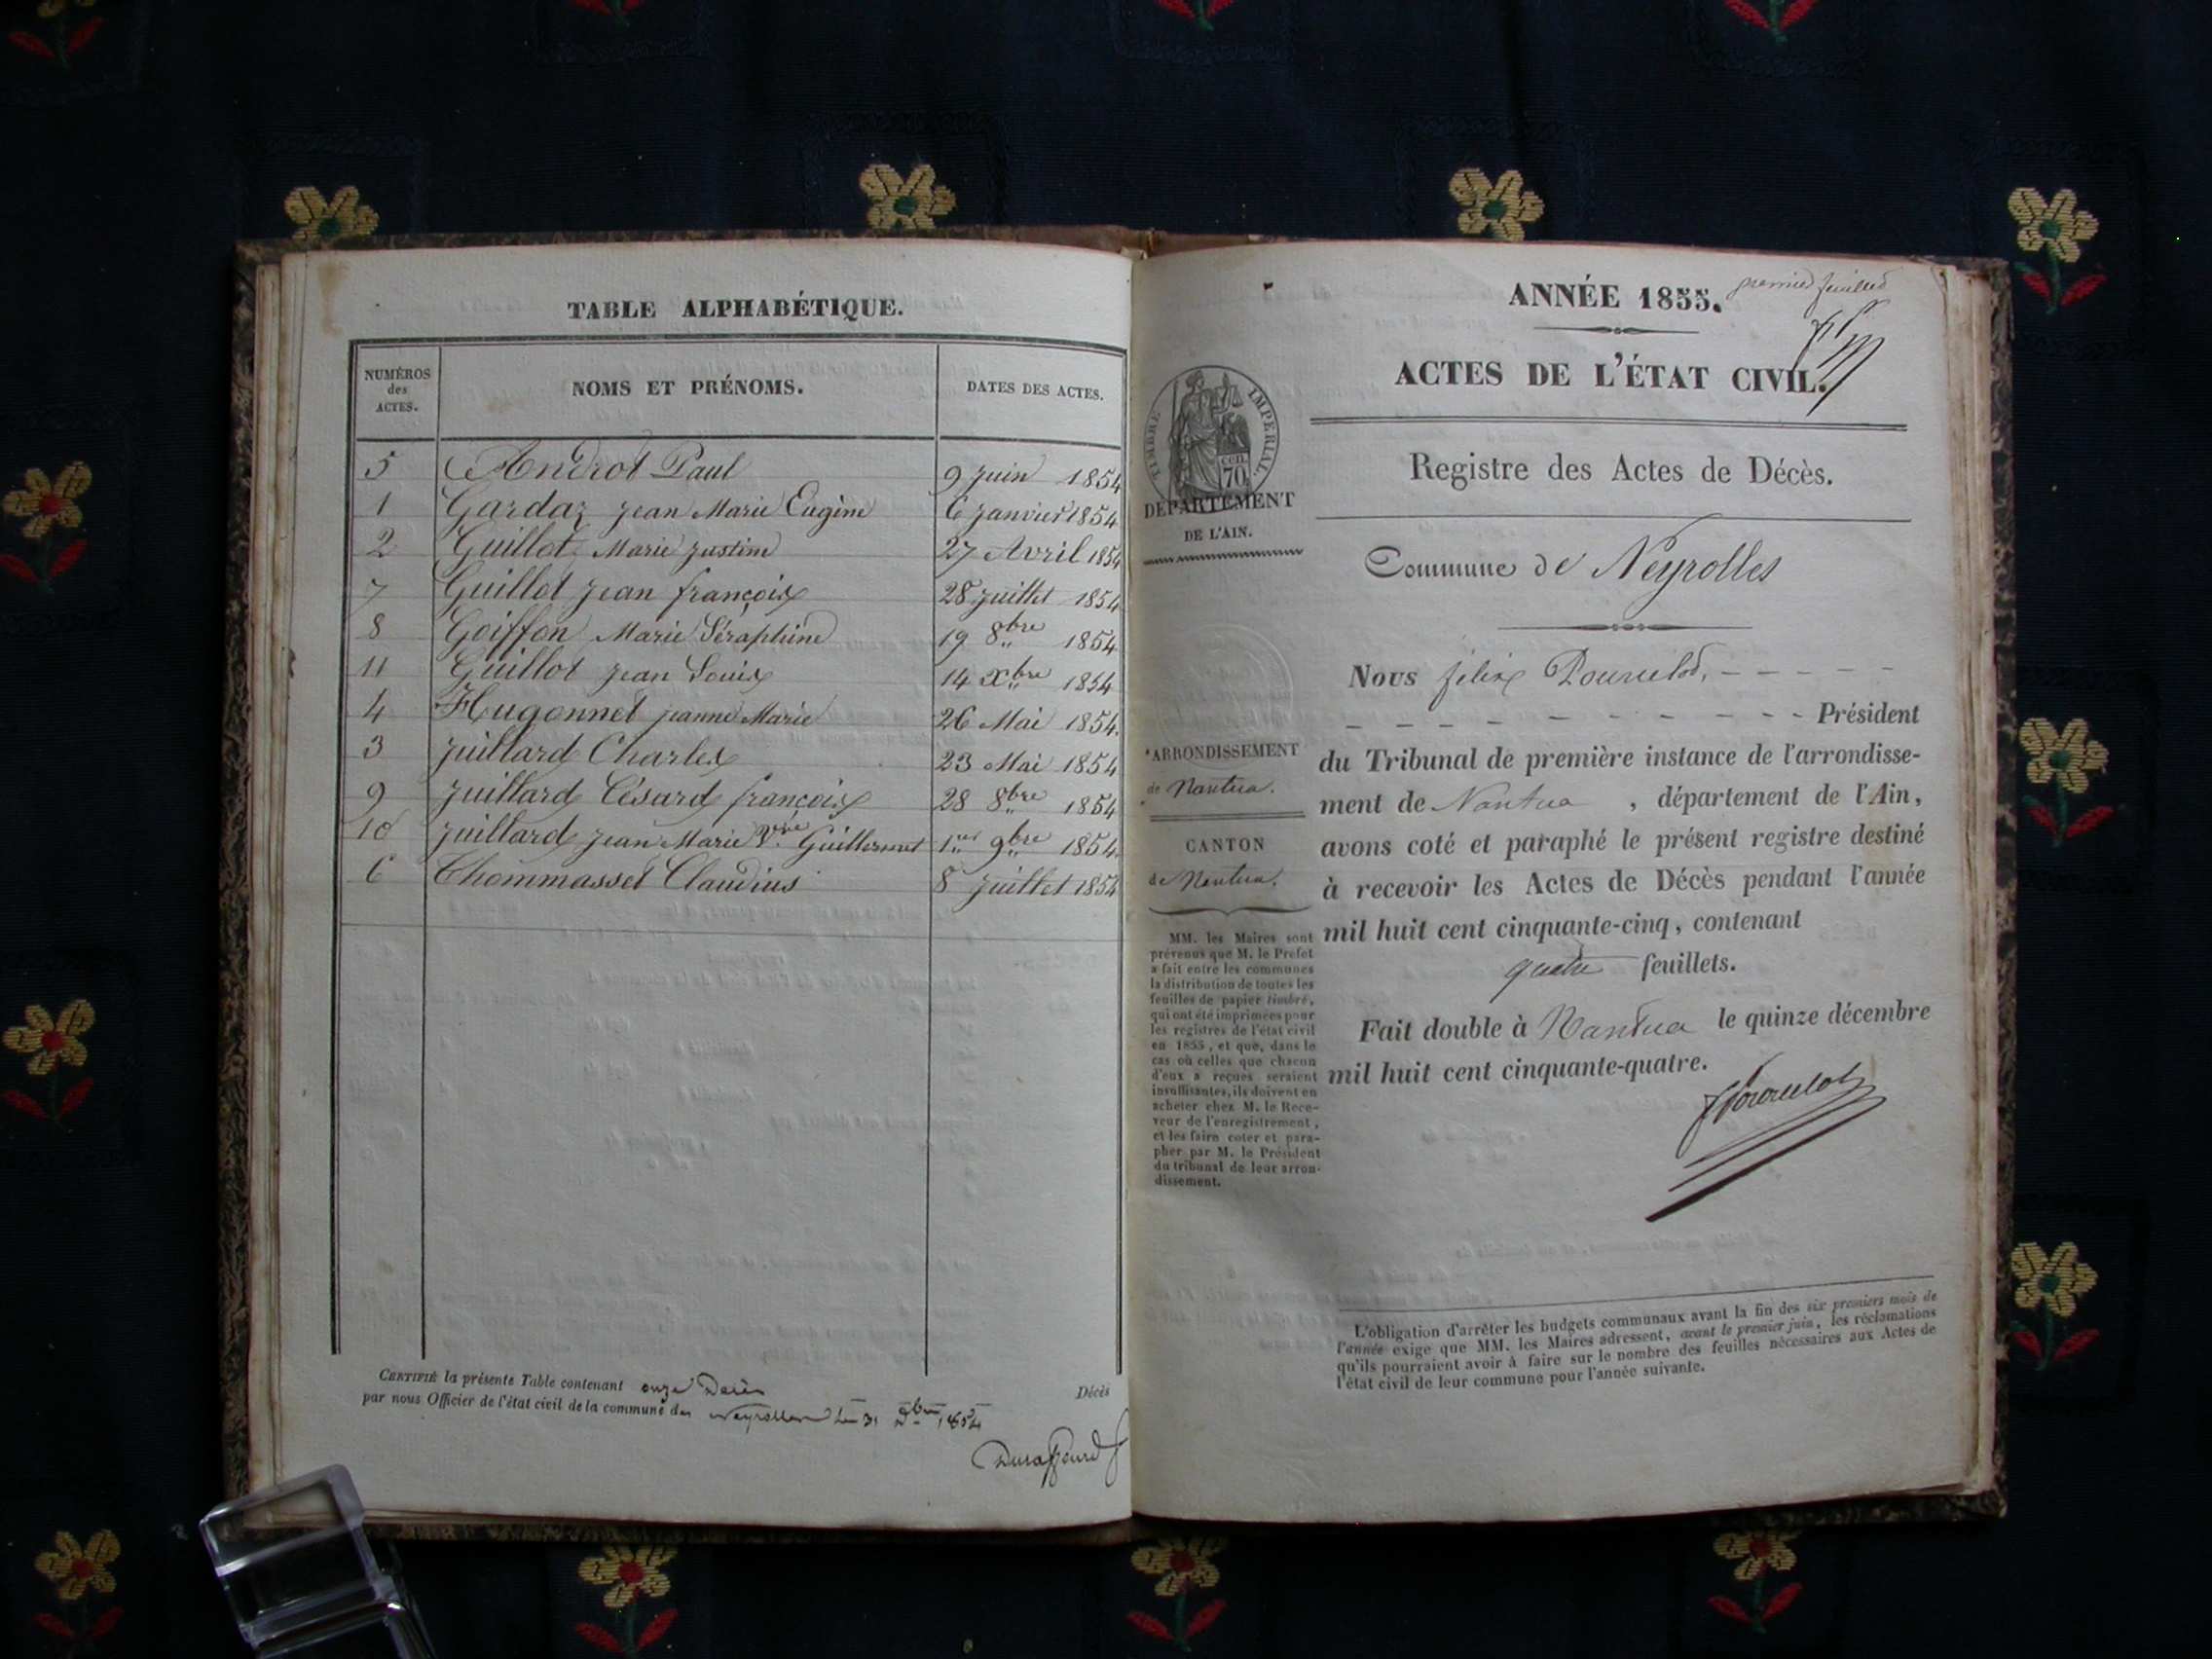 TABLE ALPHABÉTIQUE.
NUMÉROS
des
ACTES.
NOMS ET PRÉNOMS.
DATES DES ACTES.
5 Androt Paul 9 juin 1854
1 Gardaz Jean Marie Eugène 6 janvier 1854
2 Guillot Marie Justine 27 Avril 1854
7 Guillot Jean françois 28 juillet 1854
8 Goiffon Marie Séraphine 19 8bre 1854
11 Guillot Jean Louis 14 Xbre 1854
4 Hugonnet Jeanne Marie 26 Mai 1854
3 Juillard Charles 23 Mai 1854
9 Juillard Césard françois 28 8bre 1854
10 Juillard Jean Marie Vve Guillermet 1er 9bre 1854
6 Chommasset Claudius 8 juillet 1854
CERTIFIÉ la présente Table contenant onze Décès Décès
par nous Officier de l'état civil de la commune des Neyrolles le 31 Xbre 1854
Duraffourd
ANNÉE 1855.
premier feuillet
ACTES DE L'ÉTAT CIVIL.
TIMBRE IMPERIAL
cen.
70
DÉPARTEMENT
DE L'AIN.
Registre des Actes de Décès.
Commune de Neyrolles
Nous félix
Président
du Tribunal de première instance de l'arrondisse-
ment de Nantua , département de l'Ain,
avons coté et paraphé le présent registre destiné
à recevoir les Actes de Décès pendant l'année
mil huit cent cinquante-cinq, contenant
quatre feuillets.
Fait double à Nantua le quinze décembre
mil huit cent cinquante-quatre.
ARRONDISSEMENT
de Nantua.
CANTON
de Nantua.
MM. les Maires sont
prévenus que M. le Préfet
a fait entre les communes
la distribution de toutes les
feuilles de papier timbré,
qui ont été imprimées pour
les registres de l'état civil
en 1855, et que, dans le
cas où celles que chacun
d'eux a reçues seraient
insuffisantes, ils doivent en
acheter chez M. le Rece-
veur de l'enregistrement,
et les faire coter et para-
pher par M. le Président
du tribunal de leur arron-
dissement.
L'obligation d'arrêter les budgets communaux avant la fin des six premiers mois de
l'année exige que MM. les Maires adressent, avant le premier juin, les réclamations
qu'ils pourraient avoir à faire sur le nombre des feuilles nécessaires aux Actes de
l'état civil de leur commune pour l'année suivante.